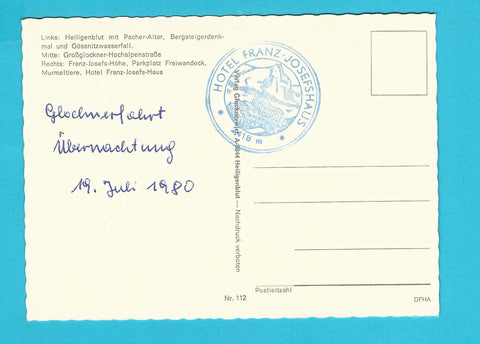 Links: Heiligenblut mit Pacher-Altar, Bergsteigerdenk-
mal und Gössnitzwasserfall.
Mitte: Großglockner-Hochalpenstraße
Rechts: Franz-Josefs-Höhe, Parkplatz Freiwandeck,
Murmeltiere, Hotel Franz-Josefs-Haus
HOTEL FRANZ-JOSEFSHAUS
18 m
Glocknerfahrt
Übernachtung
19. Juli 1980
Verlag A-9844 Heiligenblut — Nachdruck verboten
Postleitzahl
Nr. 112
DFHA